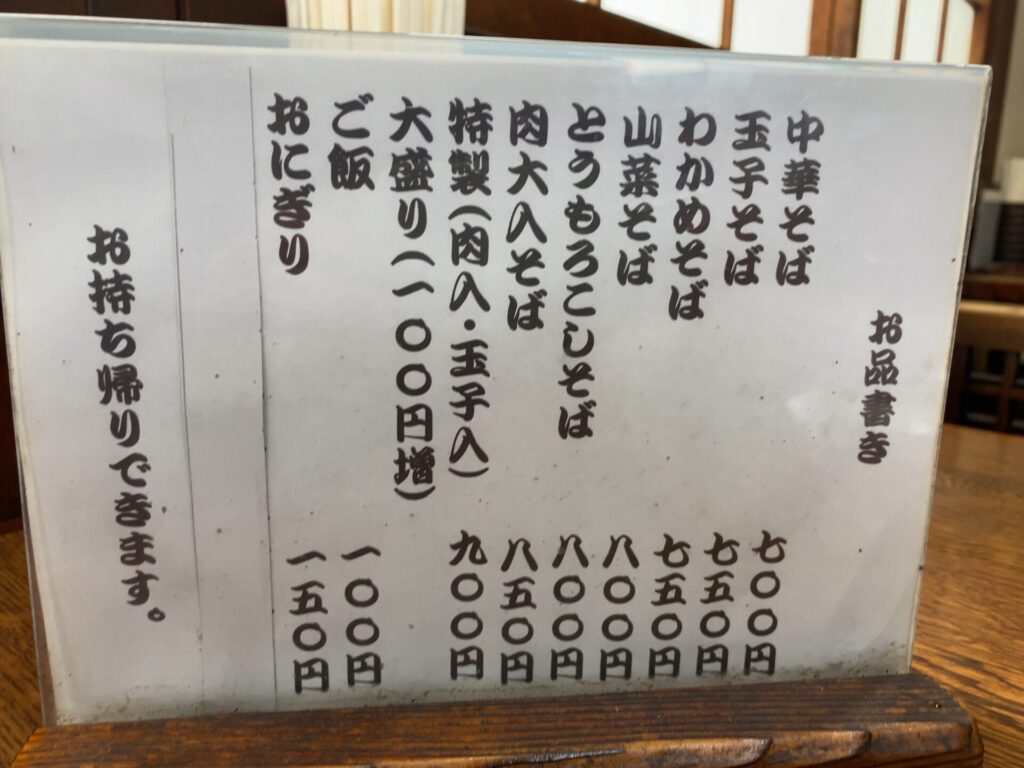 お品書き
中華そば 七〇〇円
玉子そば 七五〇円
わかめそば 七五〇円
山菜そば 八〇〇円
とうもろこしそば 八〇〇円
肉大入そば 八五〇円
特製(肉入・玉子入) 九〇〇円
大盛り(一〇〇円増)
ご飯 一〇〇円
おにぎり 一五〇円
お持ち帰りできます。